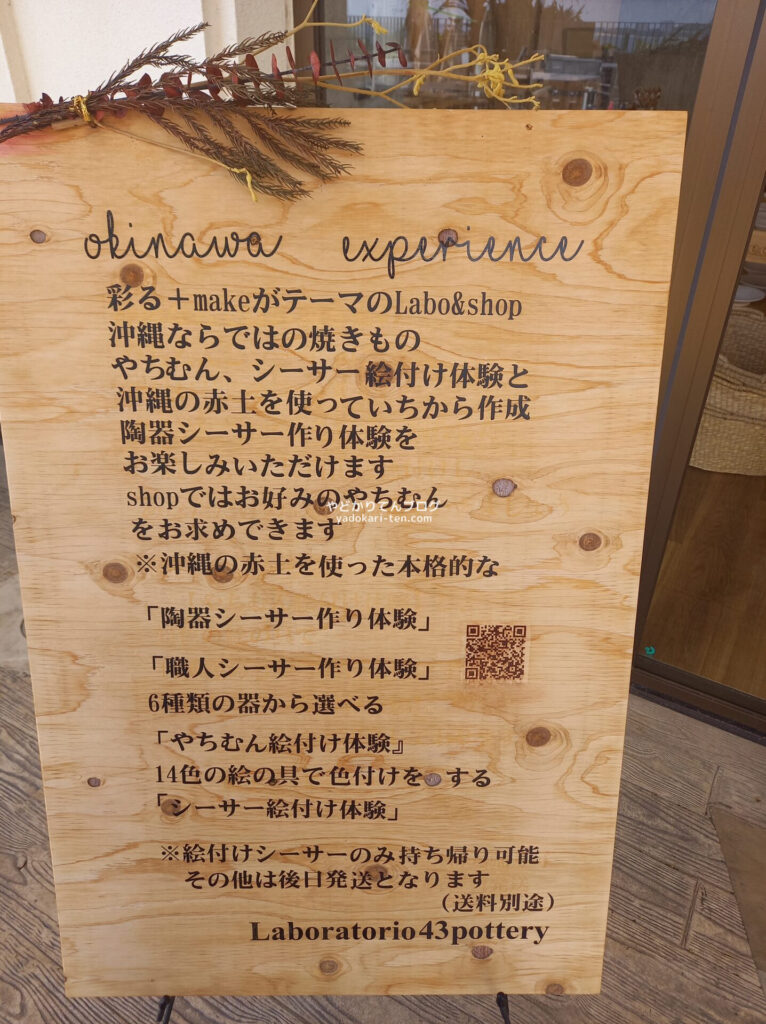 okinawa experience
彩る＋makeがテーマのLabo&shop
沖縄ならではの焼きもの
やちむん、シーサー絵付け体験と
沖縄の赤土を使っていちから作成
陶器シーサー作り体験を
お楽しみいただけます
shopではお好みのやちむん
やどかりてんブログ
yadokari-ten.com
をお求めできます
※沖縄の赤土を使った本格的な
「陶器シーサー作り体験」
「職人シーサー作り体験」
6種類の器から選べる
「やちむん絵付け体験』
14色の絵の具で色付けを する
「シーサー絵付け体験」
※絵付けシーサーのみ持ち帰り可能
その他は後日発送となります
（送料別途）
Laboratorio43pottery